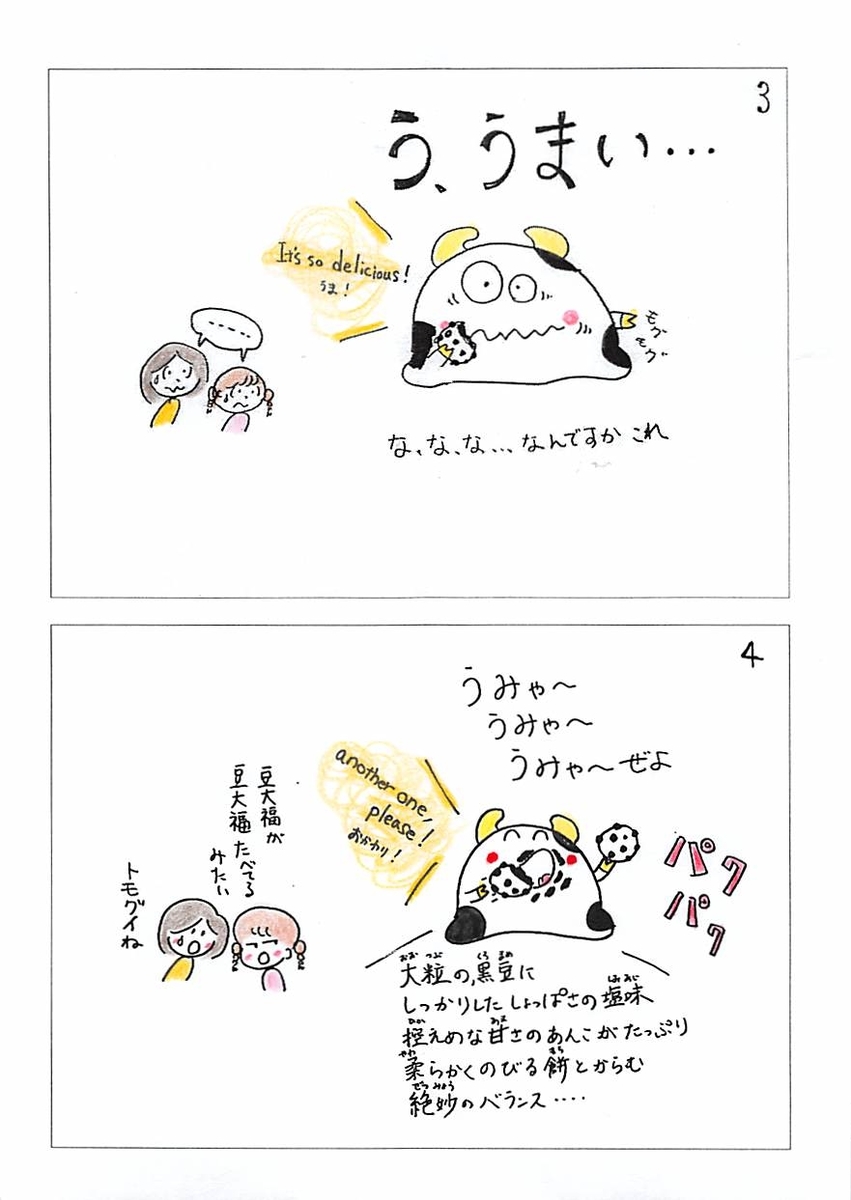 3
う、うまい…
It's so delicious!
うま!
------
モグ
モグ
な、な、な…なんですか これ
4
うみゃ〜
うみゃ〜
うみゃ〜ぜよ
another one,
please!
おかわり!
豆大福が
豆大福たべてる
みたい
トモグイね
パク
パク
おお つぶ くろ まめ
大粒の、黒豆に
しっかりした しょっぱさの 塩味
ひか あま
控えめな 甘さの あんこ が たっぷり
やわ もち
柔らかく のびる 餅と からむ
ぜつ みょう
絶妙の バランス ‥‥